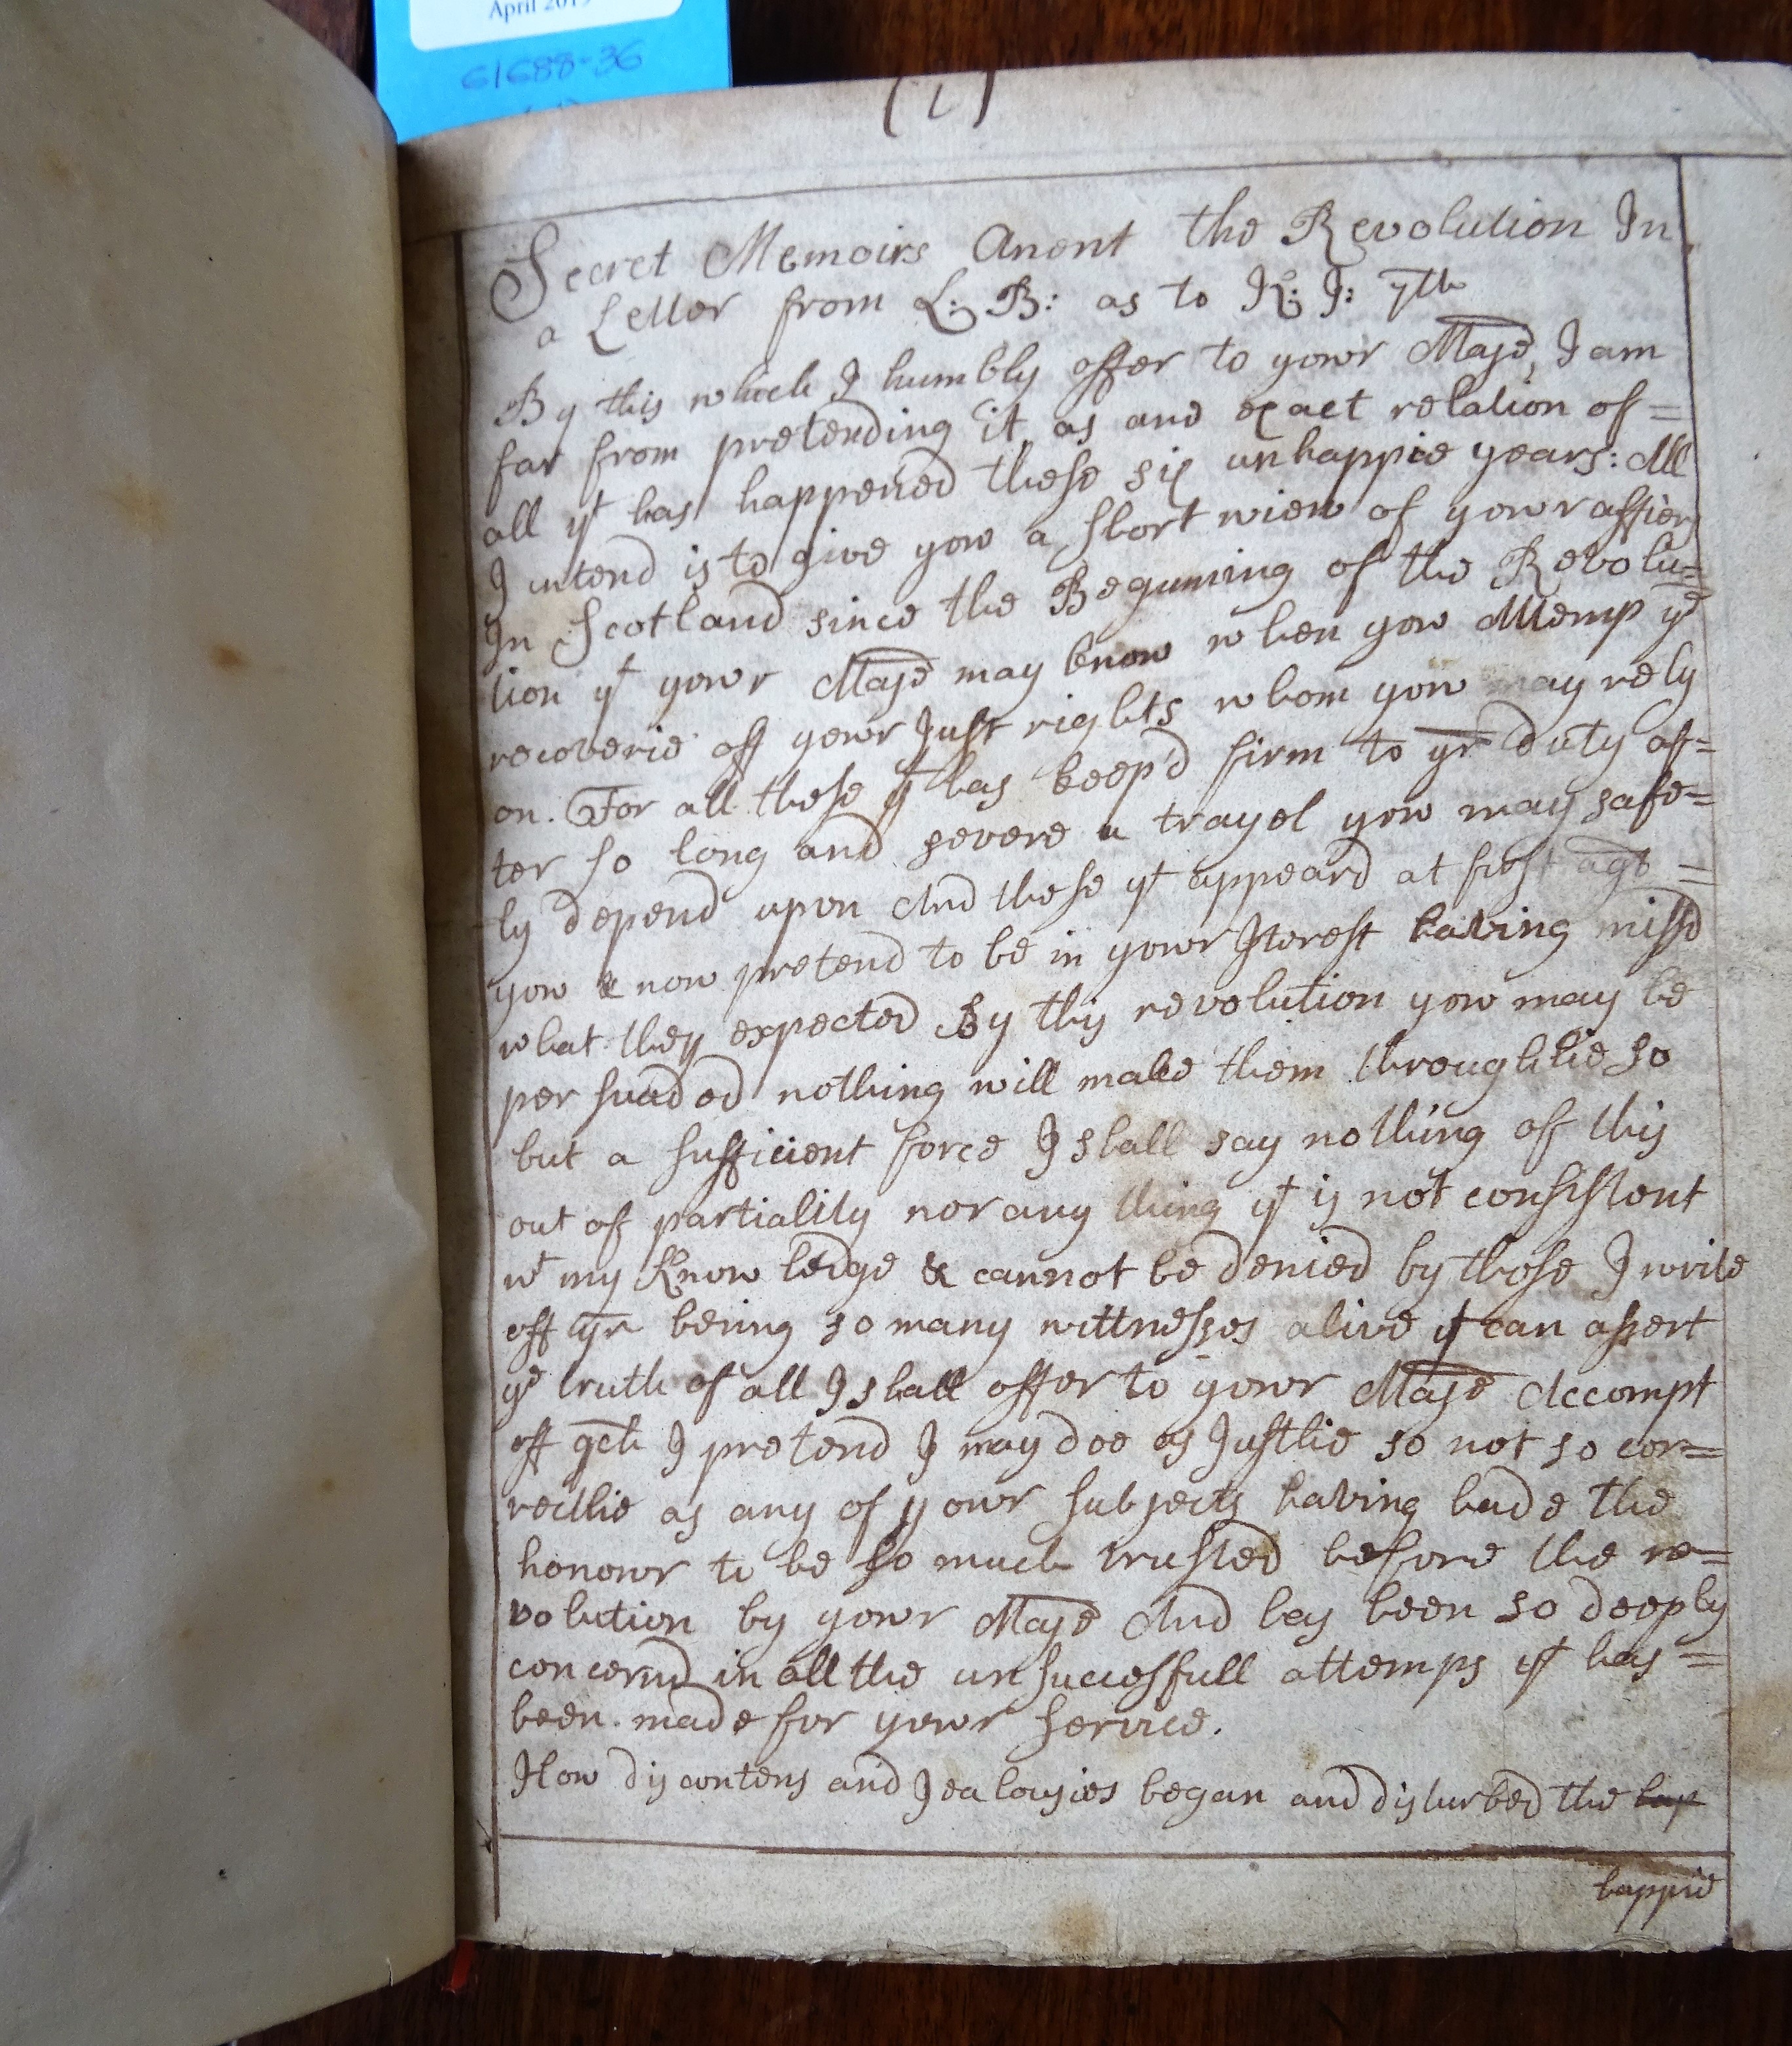 61688-36
(1)
Secret Memoirs Anent the Revolution In
a Letter from L: B: as to K: J: 7th
By this which I humbly offer to yowr Majē, I am
far from pretending it as ane exact relation of=
all yt has happened these six unhappie years: All
I intend is to give yow a short view of yowr affiers
In Scotland since the Beginning of the Revolu=
tion yt yowr Majē may know when yow Attemp ye
recoverie off yowr Just rights whom yow may rely
on. For all these yt has keep'd firm to yr duty af=
ter so long and severe a trayel yow may safe=
ly depend upon And these yt appeard at first agt =
yow & now pretend to be in yowr Iterest having missd
what they expected By this revolution yow may be
persuaded nothing will make them throughlie so
but a sufficient force I shall say nothing of this
out of partiality nor any thing yt is not consistent
wt my Knowledge & cannot be denied by those I write
off yr being so many wittnesses alive yt can assert
ye truth of all I shall offer to yowr Majē Accompt
off qch I pretend I may doe as Justlie so not so cor=
rectlie as any of yowr subjects having hade the
honowr to be so much trusted before the re=
volution by yowr Majē And hes been so deeply
concernd in all the unsuccessfull attemps yt has=
been made for yowr service.
How discontens and Jealousies began and disturbed the hap
happie